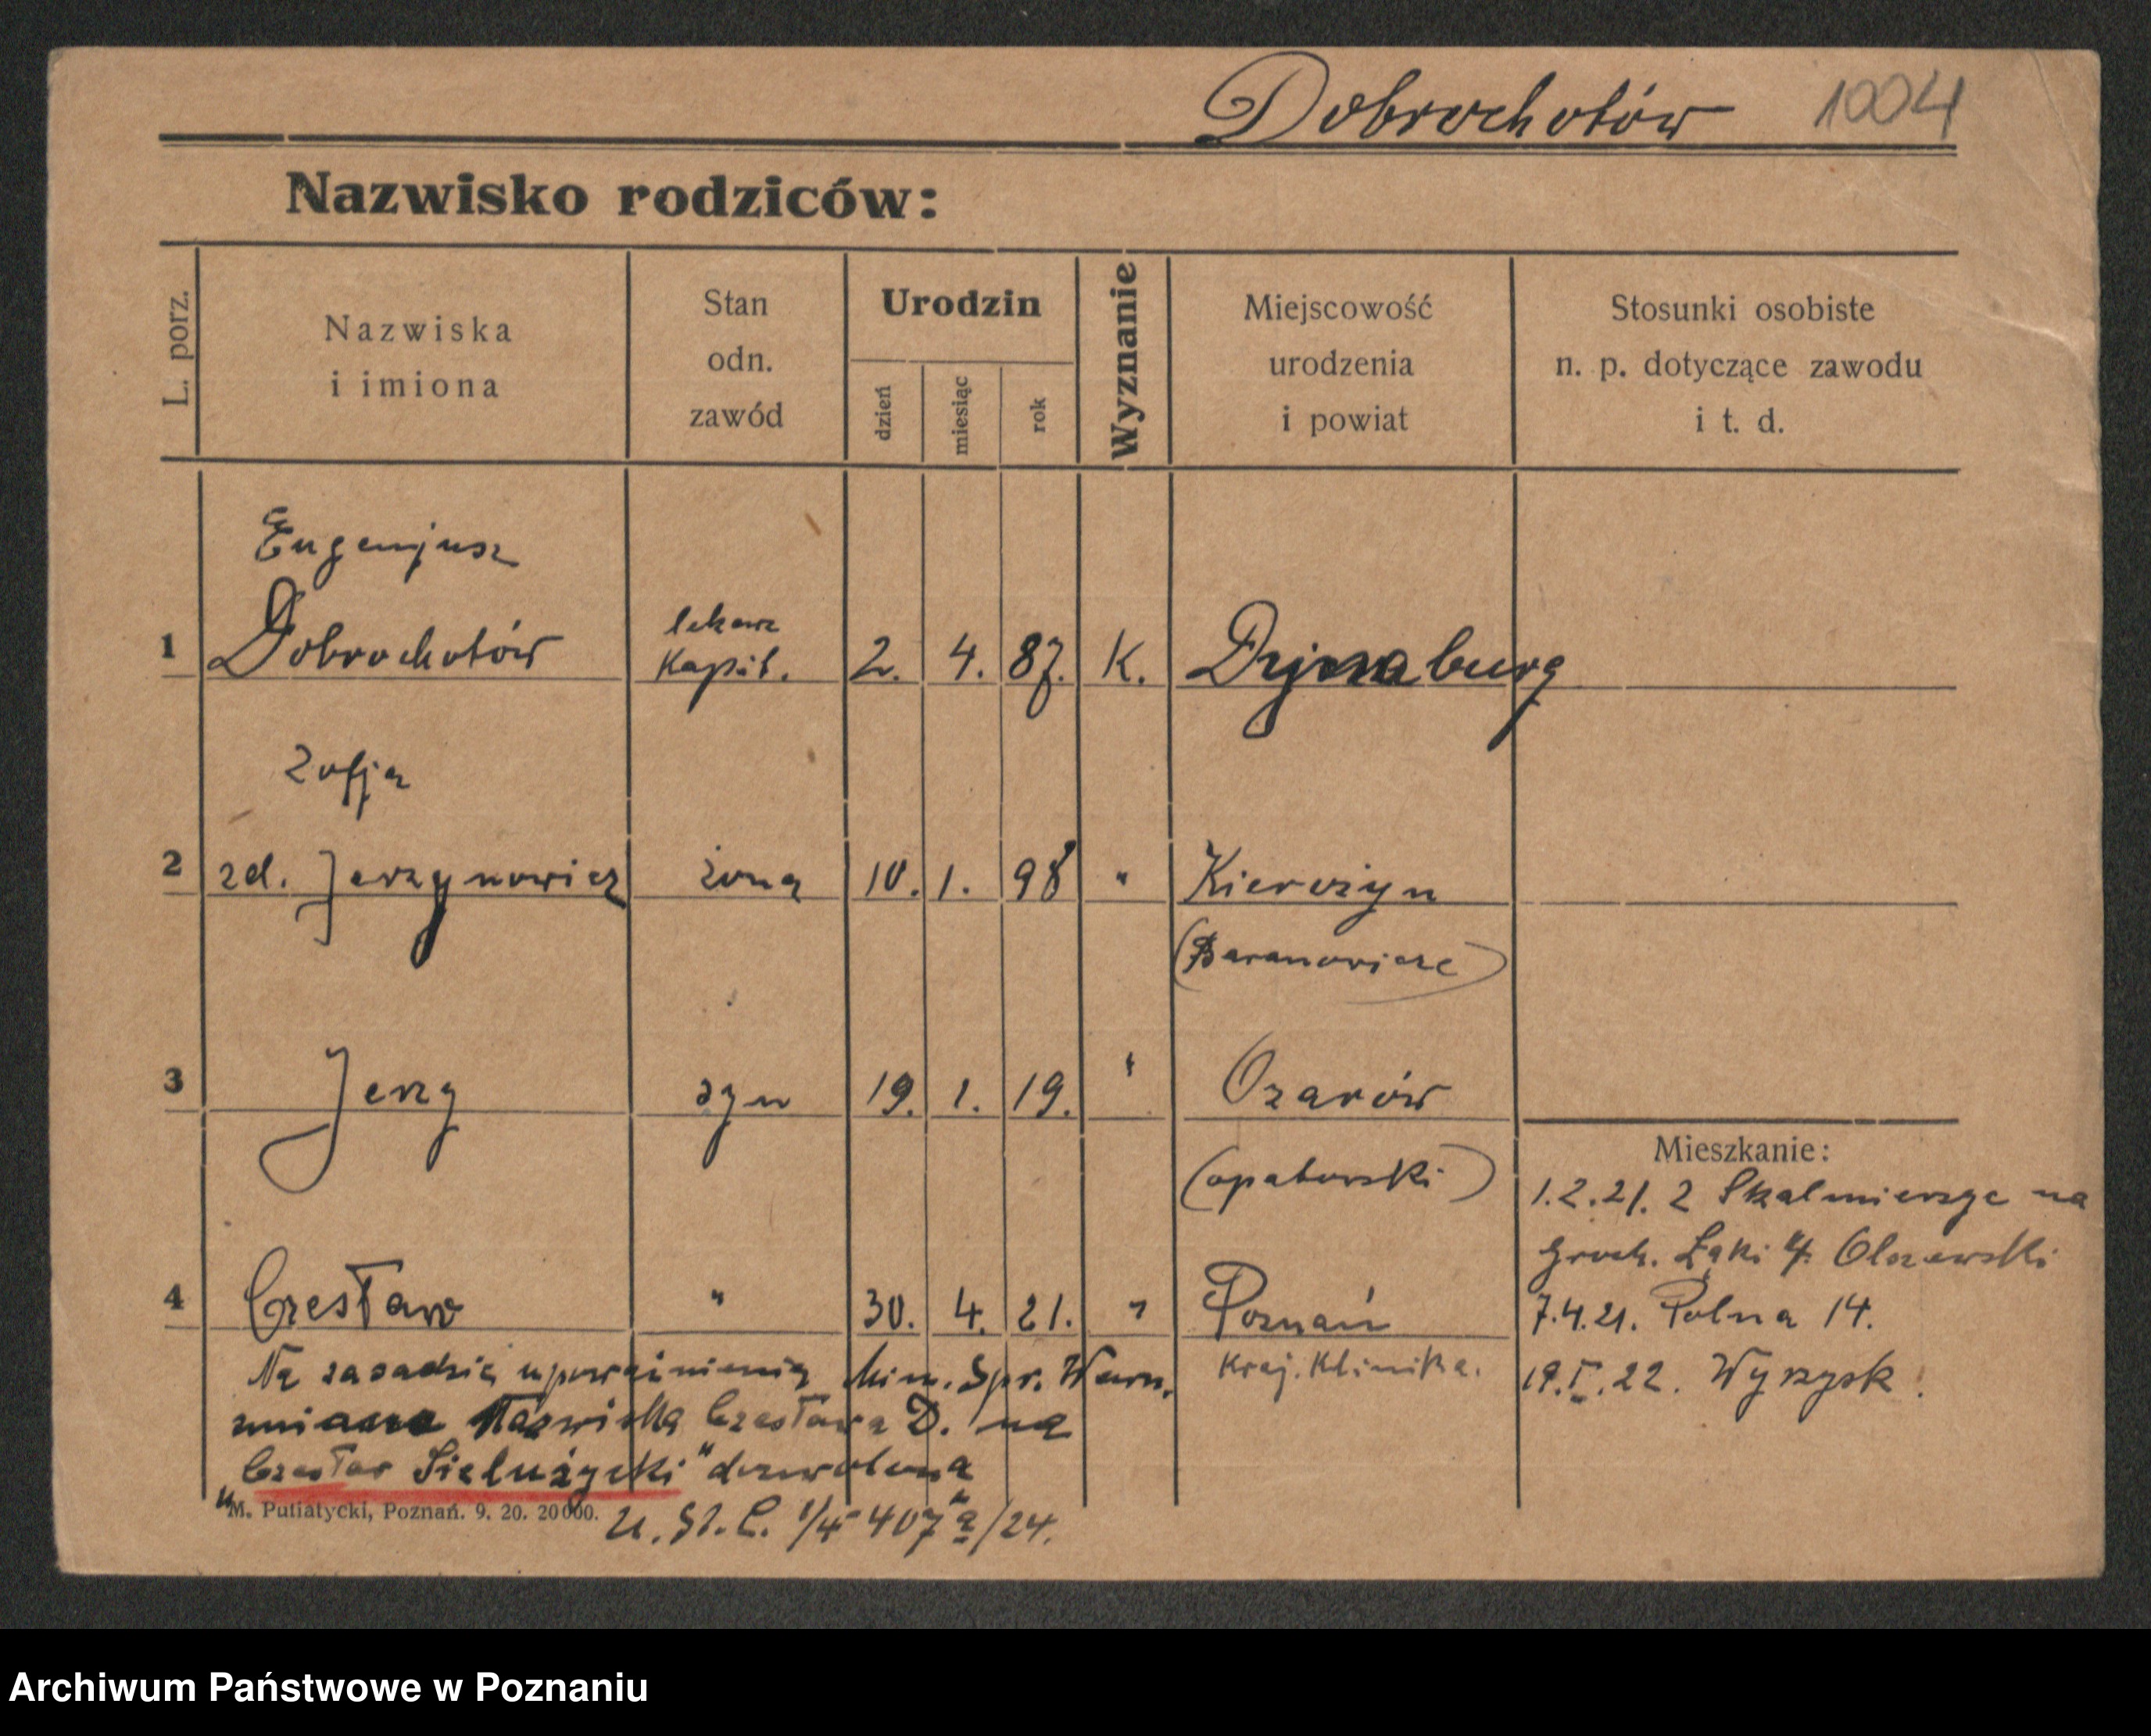 Dobrochotów 1004
Nazwisko rodziców:
L. porz.
Nazwiska
i imiona
Stan
odn.
zawód
Urodzin
dzień
miesiąc
rok
Wyznanie
Miejscowość
urodzenia
i powiat
Stosunki osobiste
n. p. dotyczące zawodu
i t. d.
Eugenjusz
lekarz
1 Dobrochotów kapit. 2. 4. 87. K. Dynaburg
Zofja
2 zd. Jerzynowicz żona 10. 1. 98 "
(Baranowicze)
3 Jerzy syn 19. 1. 19. " Ozarów
(opatowski)
Mieszkanie:
1.2.21. z Skalmierzyc na
Groch. Łąki 4. Olszewski
4 Czesław " 30. 4. 21. " Poznań
7.4.21. Polna 14.
Kraj. Klinika.
19.I.22. Wyrzysk.
Na zasadzie upoważnienia Min. Spr. Wewn.
zmiana Nazwiska Czesława D. na
"Czesław Sielużycki" dozwolona
M. Putiatycki, Poznań. 9. 20. 20000.
U. St. C. 1/4 407 a/24.